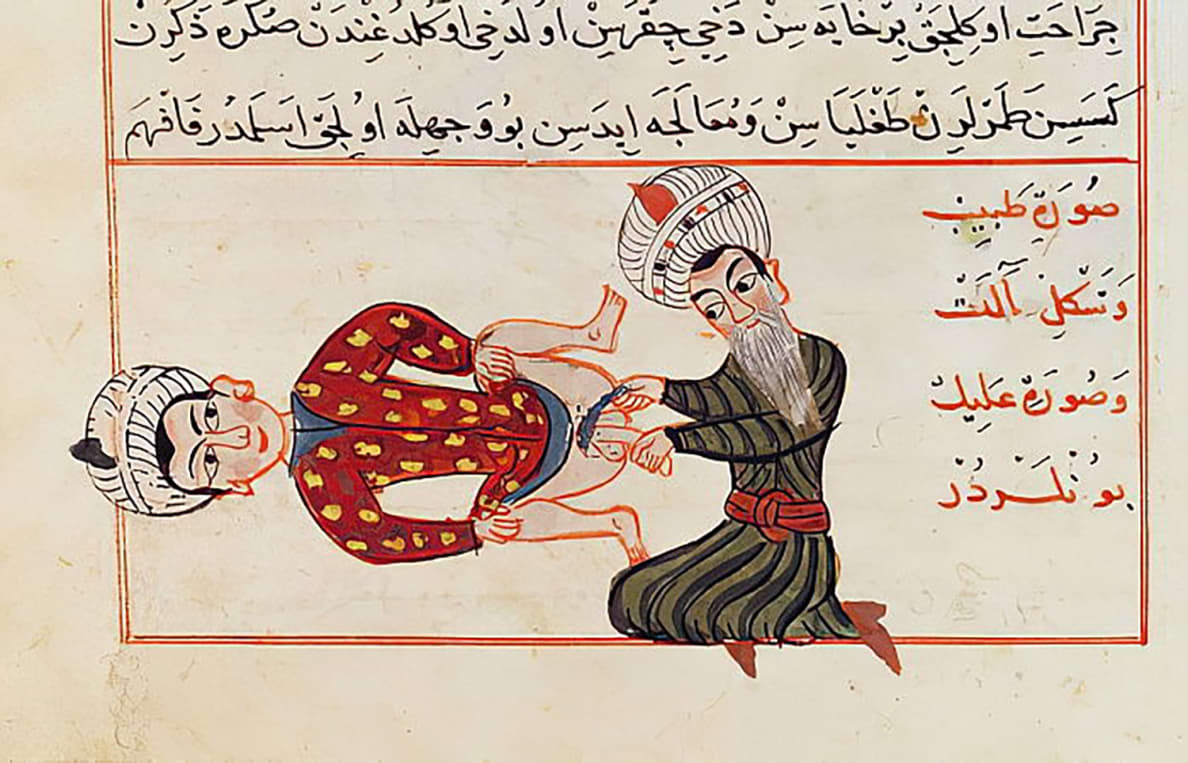 جراحت اوليجق بر خايه سن دخي چقرسن اولدخى اوكلدغندن صكره ذكرن
كسسن طمرلرن طغليا سن ومعالجه ايدسن بو وجهله اولجق اسلمدر فافهم
صورة طبيب
وشكل آلت
وصورة عليل
بونلردر